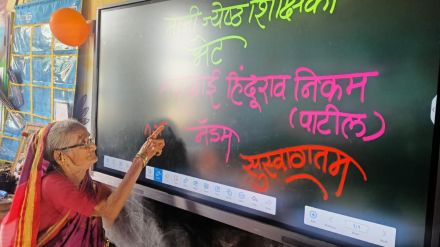 ज्येष्ठ शिक्षिका
भेट
हिंदूराव निकम
(पाटील)
मॅडम
सुस्वागतम